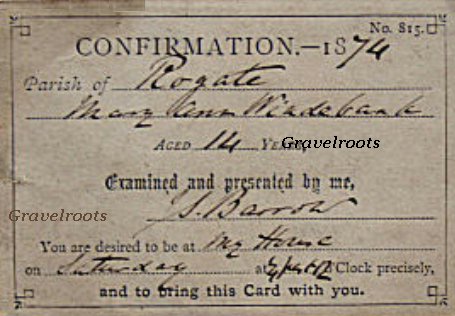 No. 815.
CONFIRMATION.—1874
Parish of Rogate
Mary Ann Windebank
AGED 14 YEARS,
Gravelroots
Examined and presented by me,
J. S. Barrow
Gravelroots
You are desired to be at My House
on Saturday at past 12 O'Clock precisely,
and to bring this Card with you.